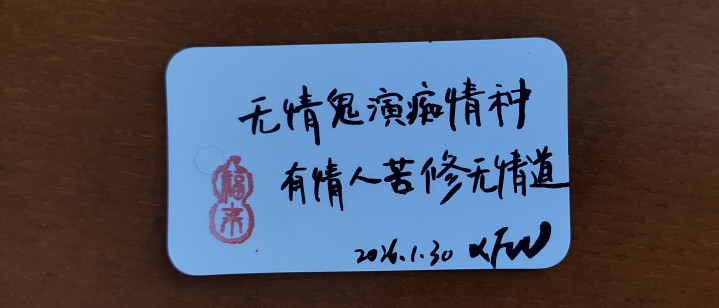 无情鬼演痴情种
有情人苦修无情道
2026.1.30